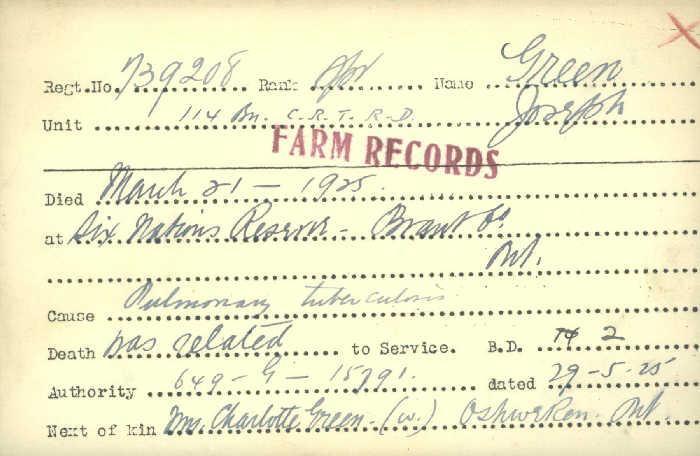 Regt.No. 739208 Rank Spr Name Green
Unit 114 Bn. C.R.T. R.D. Joseph
FARM RECORDS
Died March 21 - 1925.
at Six Nations Reserve - Brant Co
Ont.
Cause Pulmonary tuberculosis
Death was related to Service. B.D. 2
Authority 649-G-15791. dated 29-5-25
Next of kin Mrs. Charlotte Green - (w.) Oshweken. Ont.